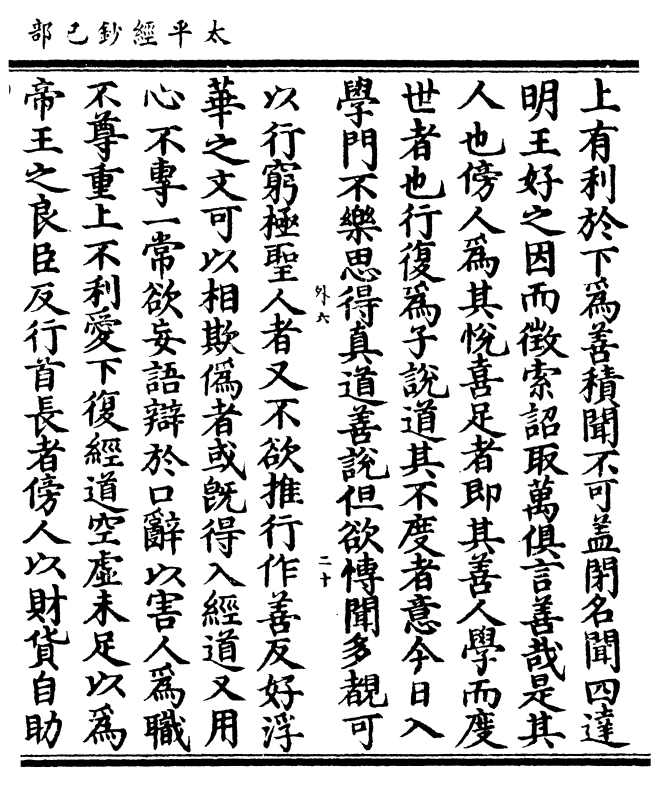 太平經鈔己部
上有利於下爲善積聞不可蓋閉名聞四達
明王好之因而徵索詔取萬俱言善哉是其
人也傍人爲其悅喜足者即其善人學而度
世者也行復爲子說道其不度者意今日入
學門不樂思得真道善說但欲愽聞多覩可
外六
二十
以行窮極聖人者又不欲推行作善反好浮
華之文可以相欺僞者或旣得入經道又用
心不專一常欲妄語辯於口辭以害人爲職
不尊重上不利愛下復經道空虛未足以爲
帝王之良臣反行首長者傍人以財貨自助